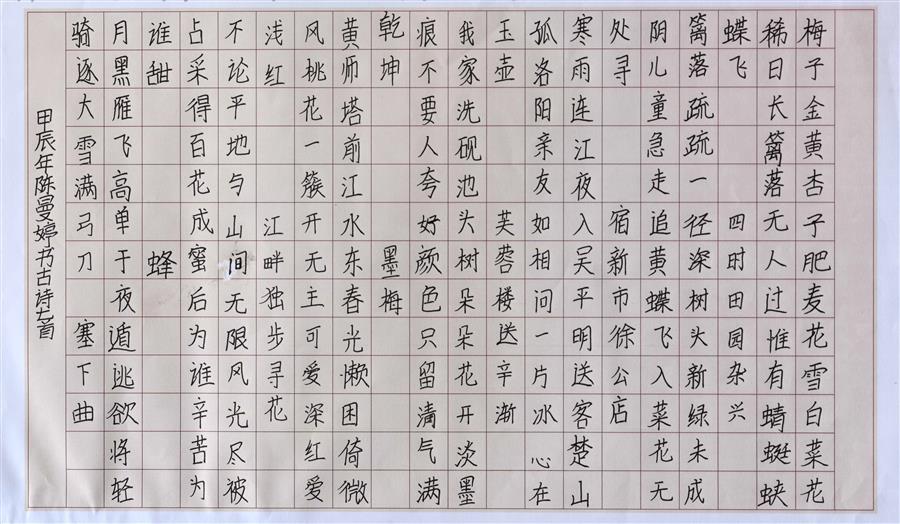 梅子金黄杏子肥麦花雪白菜花
稀日长篱落无人过惟有蜻蜓蛱
蝶飞 四时田园杂兴
篱落疏疏一径深树头新绿未成
阴儿童急走追黄蝶飞入菜花无
处寻 宿新市徐公店
寒雨连江夜入吴平明送客楚山
孤洛阳亲友如相问一片冰心在
玉壶 芙蓉楼送辛渐
我家洗砚池头树朵朵花开淡墨
痕不要人夸好颜色只留清气满
乾坤 墨梅
黄师塔前江水东春光懒困倚微
风桃花一簇开无主可爱深红爱
浅红 江畔独步寻花
不论平地与山间无限风光尽被
占采得百花成蜜后为谁辛苦为
谁甜 蜂
月黑雁飞高单于夜遁逃欲将轻
骑逐大雪满弓刀 塞下曲
甲辰年陈曼婷书古诗七首